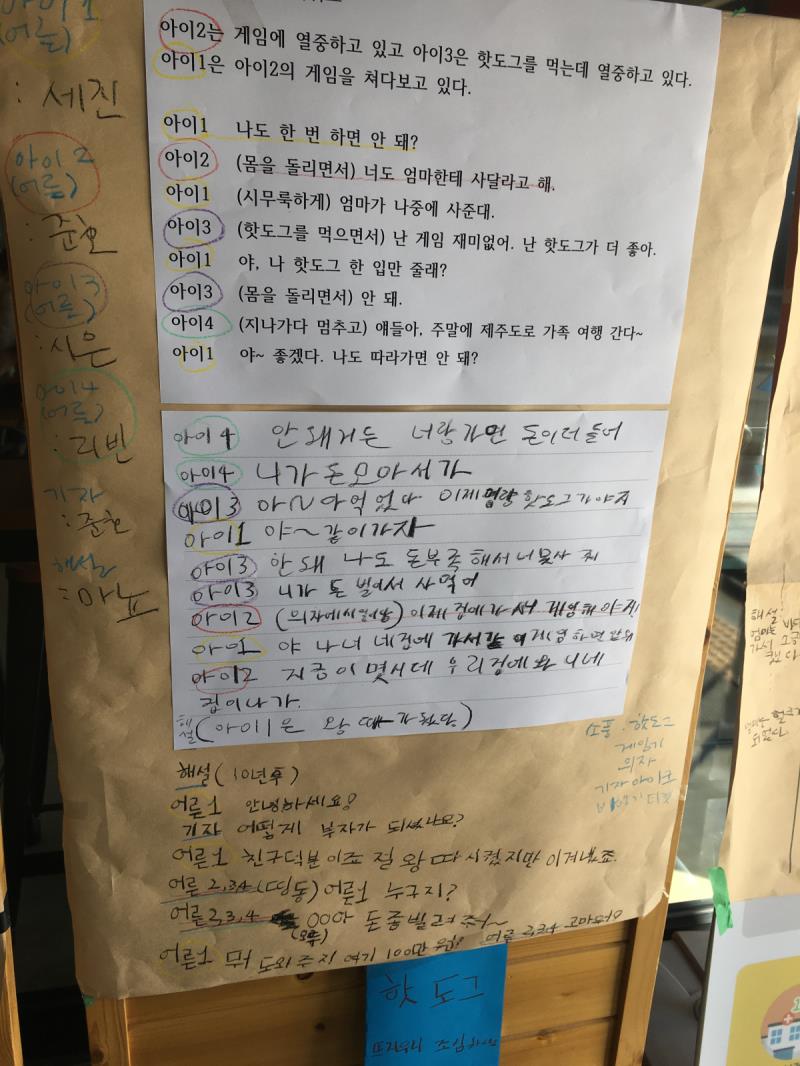 아이1
(어른)
: 세진
아이2
(어른)
: 준호
아이3
(어른)
: 시은
아이4
(어른)
: 리빈
기자
: 준호
해설
: 마뇨
아이2는 게임에 열중하고 있고 아이3은 핫도그를 먹는데 열중하고 있다.
아이1은 아이2의 게임을 쳐다보고 있다.
아이1 나도 한 번 하면 안 돼?
아이2 (몸을 돌리면서) 너도 엄마한테 사달라고 해.
아이1 (시무룩하게) 엄마가 나중에 사준대.
아이3 (핫도그를 먹으면서) 난 게임 재미없어. 난 핫도그가 더 좋아.
아이1 야, 나 핫도그 한 입만 줄래?
아이3 (몸을 돌리면서) 안 돼.
아이4 (지나가다 멈추고) 얘들아, 주말에 제주도로 가족 여행 간다~
아이1 야~ 좋겠다. 나도 따라가면 안 돼?
아이4 안돼거든 너랑가면 돈이더들어
아이4 니가돈모아서가
아이3 아~ 다먹었다 이제 핫도그가야지
아이1 야~같이가자
아이3 안돼 나도 돈부족해서너못사줘
아이3 니가 돈 빌어서 사먹어
아이2 이제 집에가서 게임해야지
아이1 야 나너네집에 가서같이게임하면
아이2 지금이몇시데 우리집에와 니네
집이나가.
해설 (아이1은 왕따가됬다)
해설 (10년후)
어른1 안녕하세요?
기자 어떻게 부자가 되셨나요?
어른1 친구덕분이죠 절 왕따 시켰지만 이겨냈죠.
어른2,3,4 (띵동) 어른1 누구지?
어른2,3,4 OO아 돈좀빌려주~
(모두)
어른1 뭐 도와주지 여기 100만원 어른 2,3,4 고마워
소품 · 핫도그
게임기
의자
핫도그
조심하
해설